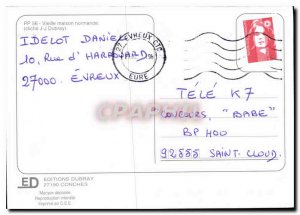 PP 56 - Vieille maison normande.
(cliché J-J Dubray)
IDELOT DANIEL
10, Rue d'HARROUARD
27000. ÉVREUX
27 EVREUX CTC
EURE
TÉLÉ K7
CONCOURS, "BABE"
BP 400
92555 SAINT. CLOUD.
ED
EDITIONS DUBRAY
27190 CONCHES
Marque déposée
Reproduction interdite
Imprimé en C.E.E.